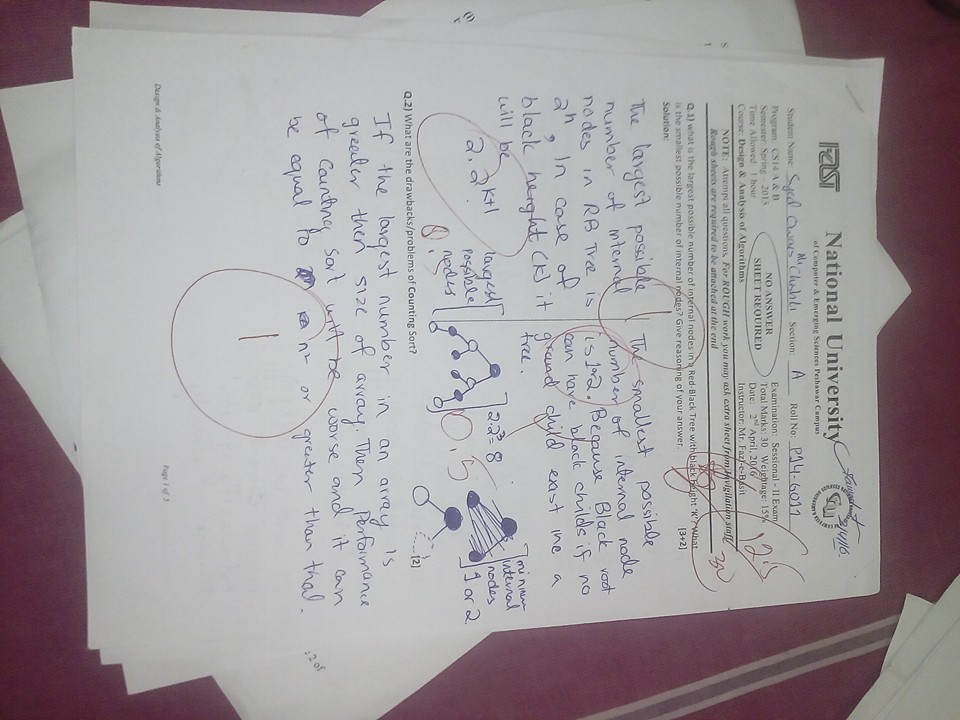 National University
of Computer & Emerging Sciences Peshawar Campus
Student Name: Syed Owais Ali Chishti Section: A Roll No: P14-6011
Program: CS14 A & B
Semester: Spring - 2015
Time Allowed: 1 hour
Course: Design & Analysis of Algorithms
NO ANSWER
SHEET REQUIRED
Examination: Sessional - II Exam
Total Marks: 30 Weightage: 15%
Date: 2nd April, 2016
Instructor: Mr. Fazl-e-Basit
12.5
30
NOTE: Attempt all questions. For ROUGH work you may ask extra sheet from invigilation staff.
Rough sheets are required to be attached at the end
Q.1) what is the largest possible number of internal nodes in a Red-Black Tree with black height 'K'? What
is the smallest possible number of internal nodes? Give reasoning of your answer. [3+2]
Solution:
The largest possible
number of internal
nodes in RB Tree is
2h, In case of
black height (K) it
will be
2.2k+1
largest
possible
nodes
2.2³=8
The smallest possible
number of internal node
is 1 or 2. Because Black root
can have black childs if no
grand child exist ine a
tree.
internal
nodes
1 or 2
1
0.5
Q.2) What are the drawbacks/problems of Counting Sort? [2]
If the largest number in an array is
greater then size of array. Then performance
of counting sort will be worse and it can
be equal to n² or greater than that.
1
Design & Analysis of Algorithms
Page 1 of 5